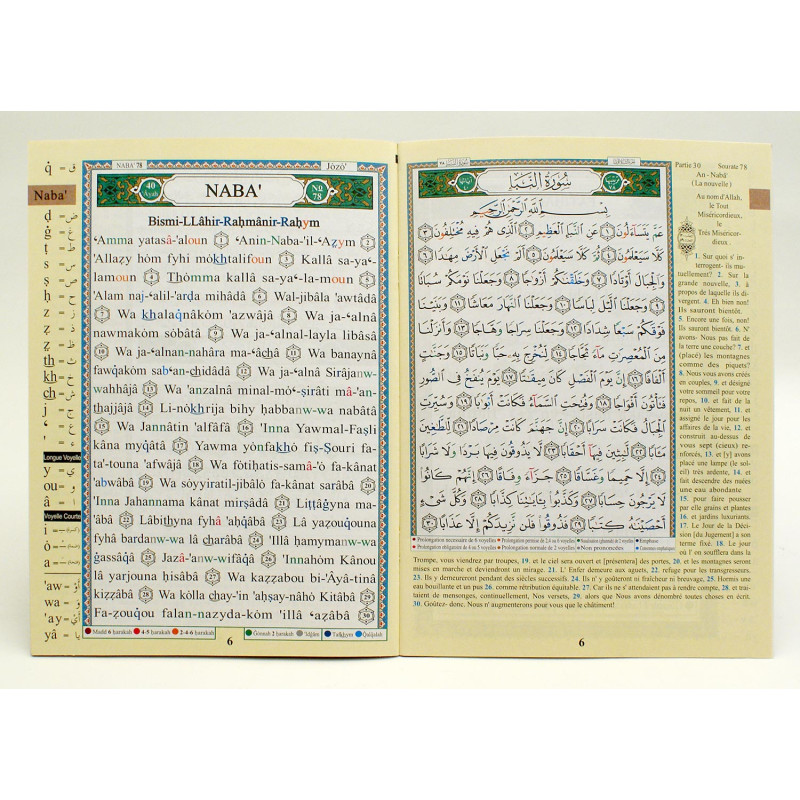 q̇ = ق
Naba'
ḍ = ض
ġ = غ
ṭ = ط
s = س
ṣ = ص
ḥ = ح
z = ز
th = ث
kh = خ
ch = ش
j = ج
Longue Voyelle
y
ou =
â
Voyelle Courte
i
ò
a
'aw = أَوْ
wa = وَ
'ay = أَيْ
yâ = يَا
NABA' 78
Jòzò'
40
Âyah
NABA'
No
78
Bismi-LLâhir-Raḥmânir-Raḥym
ʻAmma yatasâ-'aloun 1 ʻAnin-Naba-'il-ʻAẓym 2
'Allaẓy hóm fyhi mókhtalifoun 3 Kallâ sa-yaʻ-
lamoun 4 Thómma kallâ sa-yaʻ-la-moun 5
'Alam naj-ʻalil-'arḍa mihâdâ 6 Wal-jibâla 'awtâdâ
7 Wa khalaqnâkóm 'azwâjâ 8 Wa ja-ʻalnâ
nawmakóm sóbâtâ 9 Wa ja-ʻalnal-layla libâsâ
10 Wa ja-ʻalnan-nahâra ma-ʻâchâ 11 Wa banaynâ
fawqakóm sabʻan-chidâdâ 12 Wa ja-ʻalnâ Sirâjanw-
wahhâjâ 13 Wa 'anzalnâ minal-móʻ-ṣirâti mâ-'an-
thajjâjâ 14 Li-nókhrija bihy ḥabbanw-wa nabâtâ
15 Wa Jannâtin 'alfâfâ 16 'Inna Yawmal-Faṣli
kâna myqâtâ 17 Yawma yónfakhó fiṣ-Ṣouri fa-
ta'-touna 'afwâjâ 18 Wa fótiḥatis-samâ-'ó fa-kânat
'abwâbâ 19 Wa sóyyiratil-jibâló fa-kânat sarâbâ 20
'Inna Jahannama kânat mirṣâdâ 21 Liṭṭâġyna ma-
'âbâ 22 Lâbithyna fyhâ 'aḥqâbâ 23 Lâ yaẓouqouna
fyhâ bardanw-wa lâ charâbâ 24 'Illâ ḥamymanw-wa
ġassâqâ 25 Jazâ-'anw-wifâqâ 26 'Innahóm Kânou
lâ yarjouna ḥisâbâ 27 Wa kaẓẓabou bi-'Âyâ-tinâ
kiẓẓâbâ 28 Wa kólla chay-'in 'aḥṣay-nâhó Kitâbâ 29
Fa-ẓouqou falan-nazyda-kóm 'illâ ʻaẓâbâ 30
Madd 6 ḥarakah 4-5 ḥarakah 2-4-6 ḥarakah Ġonnah 2 ḥarakah 'Idġâm Tafkhym Qalqalah
6
سُورَةُ النَّبَإِ
بِسْمِ اللَّهِ الرَّحْمَٰنِ الرَّحِيمِ
عَمَّ يَتَسَاءَلُونَ ١ عَنِ النَّبَإِ الْعَظِيمِ ٢ الَّذِي هُمْ فِيهِ مُخْتَلِفُونَ ٣
كَلَّا سَيَعْلَمُونَ ٤ ثُمَّ كَلَّا سَيَعْلَمُونَ ٥ أَلَمْ نَجْعَلِ الْأَرْضَ مِهَادًا ٦
وَالْجِبَالَ أَوْتَادًا ٧ وَخَلَقْنَاكُمْ أَزْوَاجًا ٨ وَجَعَلْنَا نَوْمَكُمْ سُبَاتًا
٩ وَجَعَلْنَا اللَّيْلَ لِبَاسًا ١٠ وَجَعَلْنَا النَّهَارَ مَعَاشًا ١١ وَبَنَيْنَا
فَوْقَكُمْ سَبْعًا شِدَادًا ١٢ وَجَعَلْنَا سِرَاجًا وَهَّاجًا ١٣ وَأَنزَلْنَا
مِنَ الْمُعْصِرَاتِ مَاءً ثَجَّاجًا ١٤ لِّنُخْرِجَ بِهِ حَبًّا وَنَبَاتًا ١٥ وَجَنَّاتٍ
أَلْفَافًا ١٦ إِنَّ يَوْمَ الْفَصْلِ كَانَ مِيقَاتًا ١٧ يَوْمَ يُنفَخُ فِي الصُّورِ
فَتَأْتُونَ أَفْوَاجًا ١٨ وَفُتِحَتِ السَّمَاءُ فَكَانَتْ أَبْوَابًا ١٩ وَسُيِّرَتِ
الْجِبَالُ فَكَانَتْ سَرَابًا ٢٠ إِنَّ جَهَنَّمَ كَانَتْ مِرْصَادًا ٢١ لِّلطَّاغِينَ
مَآبًا ٢٢ لَّابِثِينَ فِيهَا أَحْقَابًا ٢٣ لَّا يَذُوقُونَ فِيهَا بَرْدًا وَلَا شَرَابًا
٢٤ إِلَّا حَمِيمًا وَغَسَّاقًا ٢٥ جَزَاءً وِفَاقًا ٢٦ إِنَّهُمْ كَانُوا
لَا يَرْجُونَ حِسَابًا ٢٧ وَكَذَّبُوا بِآيَاتِنَا كِذَّابًا ٢٨ وَكُلَّ شَيْءٍ
أَحْصَيْنَاهُ كِتَابًا ٢٩ فَذُوقُوا فَلَن نَّزِيدَكُمْ إِلَّا عَذَابًا ٣٠
Partie 30 Sourate 78
An - Naba'
(La nouvelle)
Au nom d'Allah,
le Tout
Miséricordieux,
le
Très Miséricor-
dieux .
1. Sur quoi s' in-
terrogent- ils mu-
tuellement? 2. Sur la
grande nouvelle, 3. à
propos de laquelle ils di-
vergent. 4. Eh bien non!
Ils sauront bientôt.
5. Encore une fois, non!
Ils sauront bientôt. 6. N'
avons- Nous pas fait de
la terre une couche? 7. et
(placé) les montagnes
comme des piquets?
8. Nous vous avons créés
en couples, 9. et désigné
votre sommeil pour votre
repos, 10. et fait de la
nuit un vêtement, 11. et
assigné le jour pour les
affaires de la vie, 12. et
construit au-dessus de
vous sept (cieux) ren-
forcés, 13. et [y] avons
placé une lampe (le sol-
eil) très ardente, 14. et
fait descendre des nuées
une eau abondante
15. pour faire pousser
par elle grains et plantes
16. et jardins luxuriants.
17. Le Jour de la Décision
[du Jugement] a son
terme fixé. 18. Le jour
où l' on soufflera dans la
Trompe, vous viendrez par troupes, 19. et le ciel sera ouvert et [présentera] des portes, 20. et les montagnes seront
mises en marche et deviendront un mirage. 21. L' Enfer demeure aux aguets, 22. refuge pour les transgresseurs.
23. Ils y demeureront pendant des siècles successifs. 24. Ils n' y goûteront ni fraîcheur ni breuvage, 25. Hormis une
eau bouillante et un pus 26. comme rétribution équitable. 27. Car ils ne s' attendaient pas à rendre compte, 28. et trai-
taient de mensonges, continuellement, Nos versets, 29. alors que Nous avons dénombré toutes choses en écrit.
30. Goûtez- donc. Nous n' augmenterons pour vous que le châtiment!
6